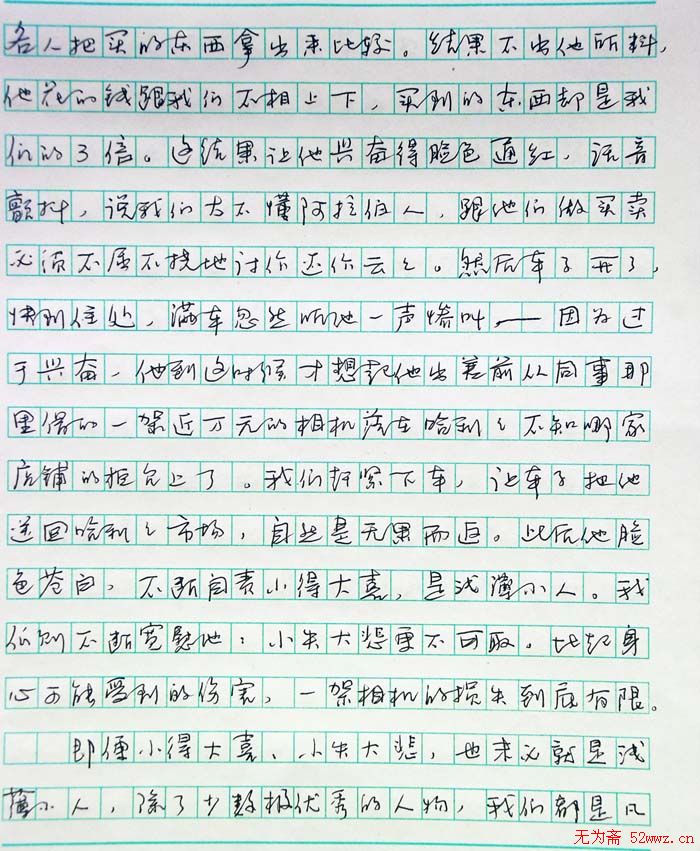 各人把买的东西拿出来比较。结果不出他所料,
他花的钱跟我们不相上下，买到的东西却是我
们的3倍。这结果让他兴奋得脸色通红，话音
颤抖，说我们太不懂阿拉伯人，跟他们做买卖
必须不屈不挠地讨价还价云云。然后车子开了,
快到住处，满车忽然听他一声惨叫——因为过
于兴奋，他到这时候才想起他出差前从同事那
里借的一架近万元的相机落在哈利利不知哪家
店铺的柜台上了。我们赶紧下车，让车子把他
送回哈利利市场，自然是无果而返。此后他脸
色苍白，不断自责小得大喜，是浅薄小人。我
们则不断宽慰他：小失大悲更不可取。比起身
心可能受到的伤害，一架相机的损失到底有限。
即便小得大喜、小失大悲，也未必就是浅
薄小人，除了少数极优秀的人物，我们都是凡
无为斋 52wwz.cn